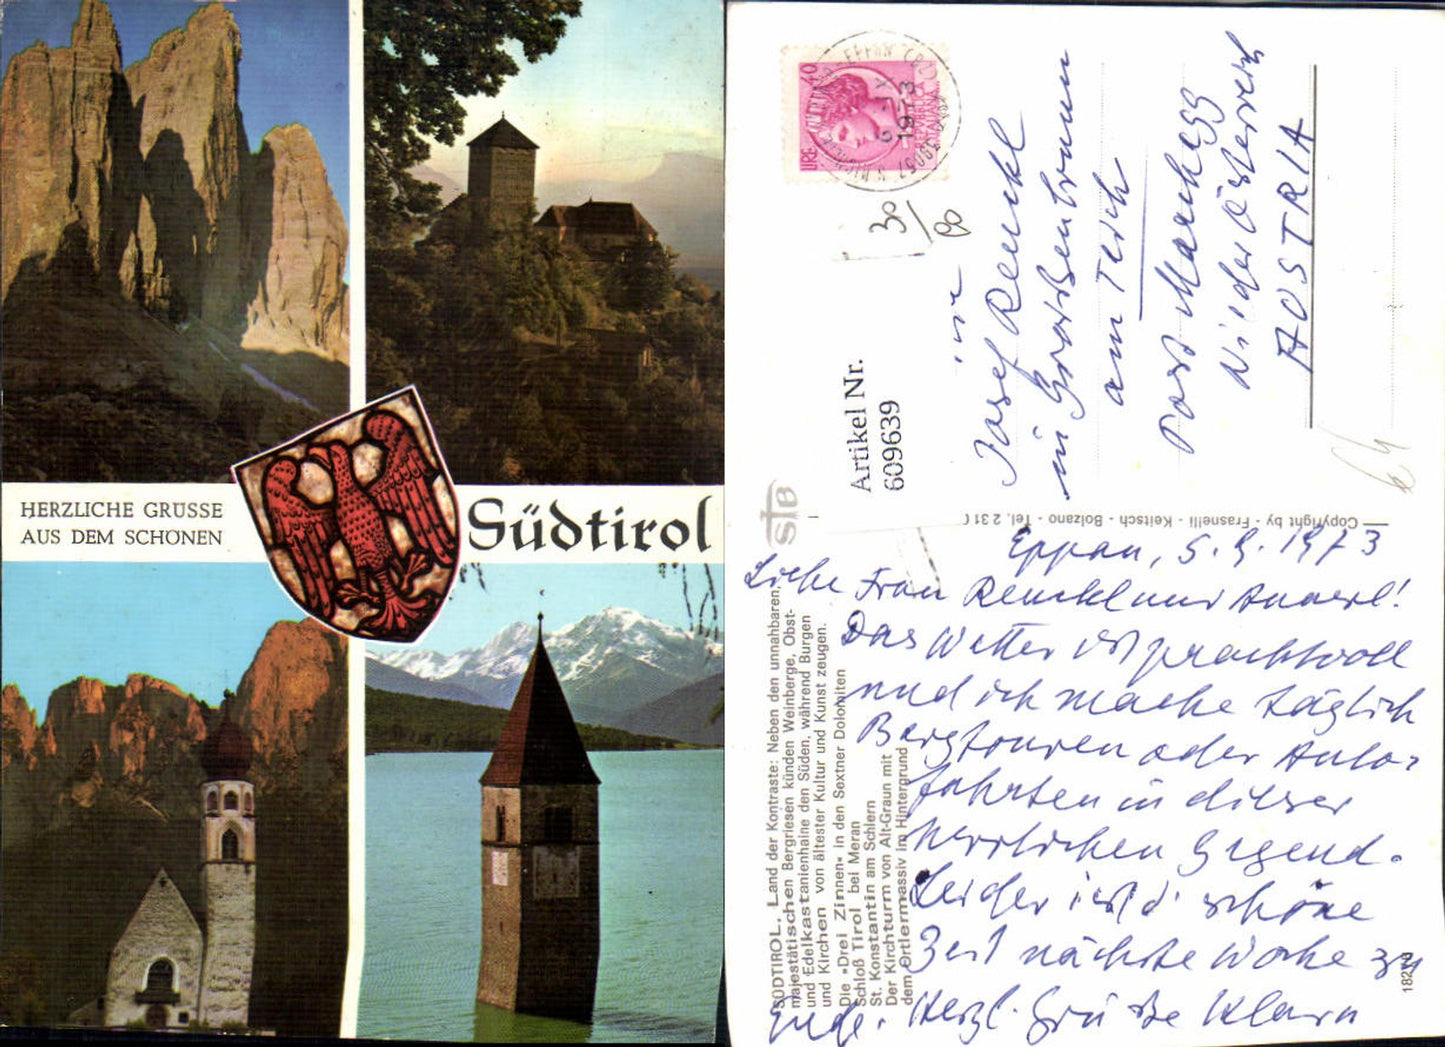 HERZLICHE GRÜSSE
AUS DEM SCHÖNEN
Südtirol
LIRE 40
6 - IX
1973
39057
30/80
Artikel Nr.
609639
Josef Renckl
in Großenbrunn
am Teich
Post Marchegg
Niederösterreich
AUSTRIA
STB
Copyright by - Frasnelli - Keitsch - Bolzano - Tel. 2 31 0
Eppan, 5.9.1973
Liebe Frau Renckl und Annerl!
Das Wetter ist prachtvoll
und ich mache täglich
Bergtouren oder Auto-
fahrten in dieser
herrlichen Gegend.
Leider ist d' schöne
Zeit nächste Woche zu
Ende. Herzl. Grüße Klara
SÜDTIROL. Land der Kontraste: Neben den unnahbaren,
majestätischen Bergriesen künden Weinberge, Obst-
und Edelkastanienhaine den Süden, während Burgen
und Kirchen von ältester Kultur und Kunst zeugen.
Die »Drei Zinnen« in den Sextner Dolomiten
Schloß Tirol bei Meran
St. Konstantin am Schlern
Der Kirchturm von Alt-Graun mit
dem Ortlermassiv im Hintergrund